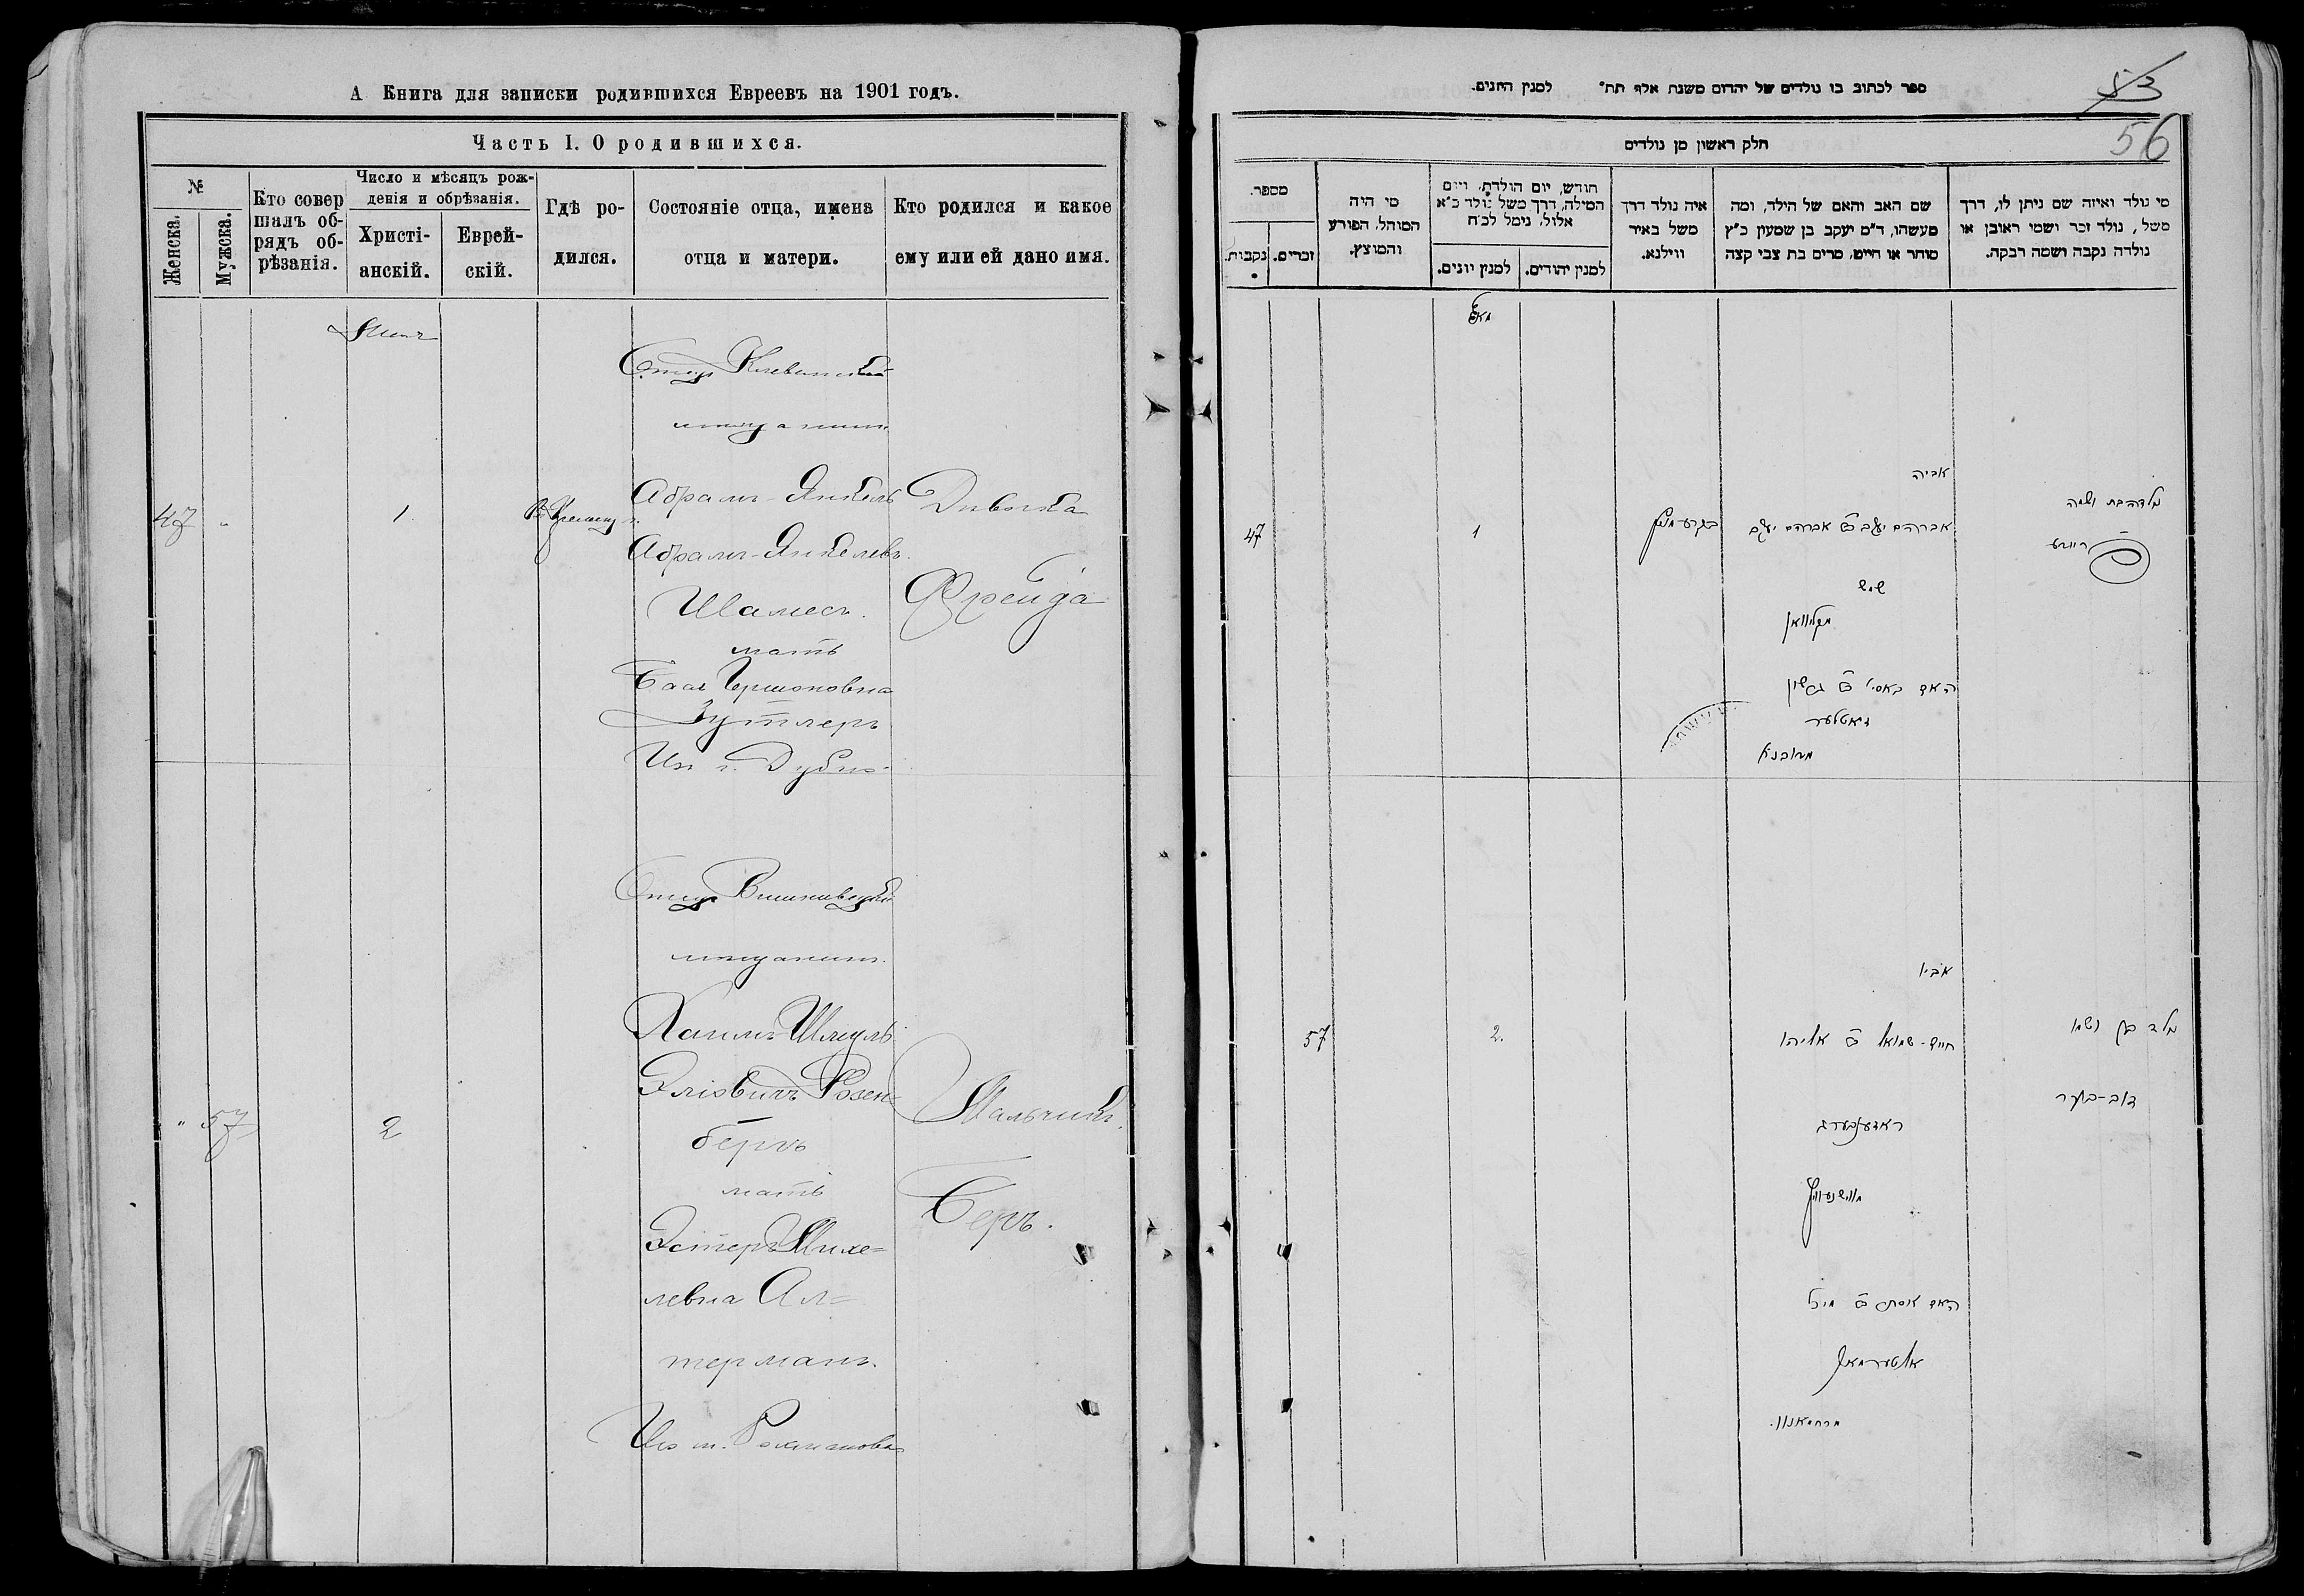 А Книга для записки родившихся Евреевъ на 1901 годъ.
Часть I. О родившихся.
№
Женска.
Мужска.
Кто совер
шалъ об-
рядъ об-
рѣзанія.
Число и мѣсяцъ рож-
денія и обрѣзанія.
Христі-
анскій.
Еврей-
скій.
Гдѣ ро-
дился.
Состояніе отца, имена
отца и матери.
Кто родился и какое
ему или ей дано имя.
Отецъ Клеванскій
мѣщанинъ
47 " 1
Абрамъ-Янкель
Абрамъ-Янкелевъ
Шамесъ.
мать
Бася Гершоновна
Зутлеръ
Из г. Дубно
Дивочка
Фрейда
Отецъ Вишневецкій
мѣщанинъ.
" 57 2
Хаимъ-Шмуль
Эліовичъ Розен-
бергъ
мать
Эстеръ Михе=
левна Ал=
терманъ.
Из м. Рахманова
Мальчикъ.
Беръ.
ספר לכתוב בו נולדים של יהודים משנת אלף תת״ למנין היונים.
53
56
חלק ראשון מן נולדים
מספר.
נקבות.
זכרים.
מי היה
המוהל, הפורע
והמוצץ.
חודש, יום הולדת, ויום
המילה, דרך משל נולד כ״א
אלול, נימל לכ״ח
למנין יונים.
למנין יהודים.
איה נולד דרך
משל באיר
ווילנא.
שם האב והאם של הילד, ומה
מעשהו, ד״מ יעקב בן שמעון כ״ץ
סוחר או חייט, מרים בת צבי קצה
מי נולד ואיזה שם ניתן לו, דרך
משל, נולד זכר ושמו ראובן או
נולדה נקבה ושמה רבקה.
מאי
47
1
אביה
אברהם יעקב ב אברהם יעקב
שמש
מקליוואן
האם באסי ב גרשון
זאטלער
מדובנא
נולדה בת ושמה
פריידא
57
2.
אביו
חיים-שמואל ב אליהו
ראזענבערג
מווישניוויץ
האם אסתר ב מיכל
אלטערמאן
מרחמאנוו.
נולד בן ושמו
דוב-בער